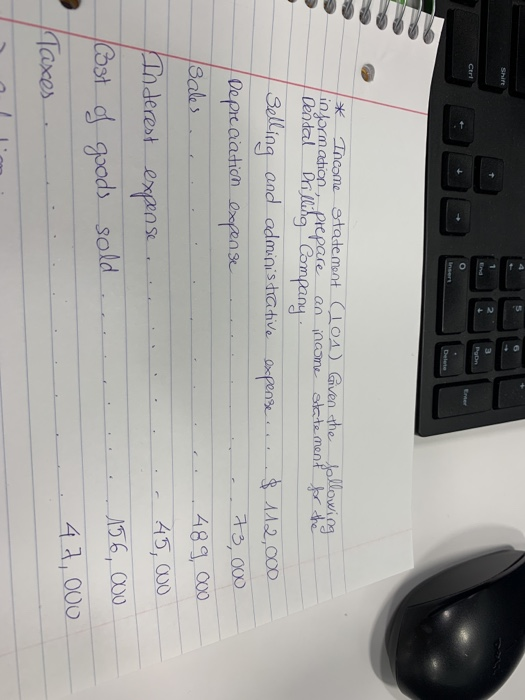 * Income statement (LO1) Given the following
information, prepare an income statement for the
Dental Drilling Company.
Selling and administrative expense.... $ 112,000
Depreciation expense ........ 73,000
Sales .......... 489,000
Interest expense ......... 45,000
Cost of goods sold ........ 156,000
Taxes .......... 47,000
Shift
Ctrl
4
5
6
1
End
2
3
PgDn
0
Insert
.
Delete
Enter